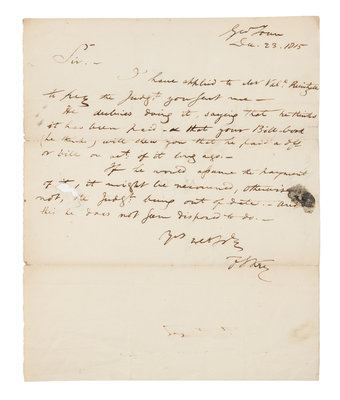 Geo Town
Dec. 23. 1815
Sir.-
I have applied to Mr Val. Reintzell
to pay the Judgt. you sent me -
He declines doing it, saying that he thinks
it has been paid - & that your Bill-book
(he thinks) will shew you that he paid a dft
or bill on acct. of it long ago. -
If he would assume the payment
of it, it might be recovered, otherwise
not, the Judgt. being out of date. - and
this he does not seem disposed to do. -
Yrs
F S Key